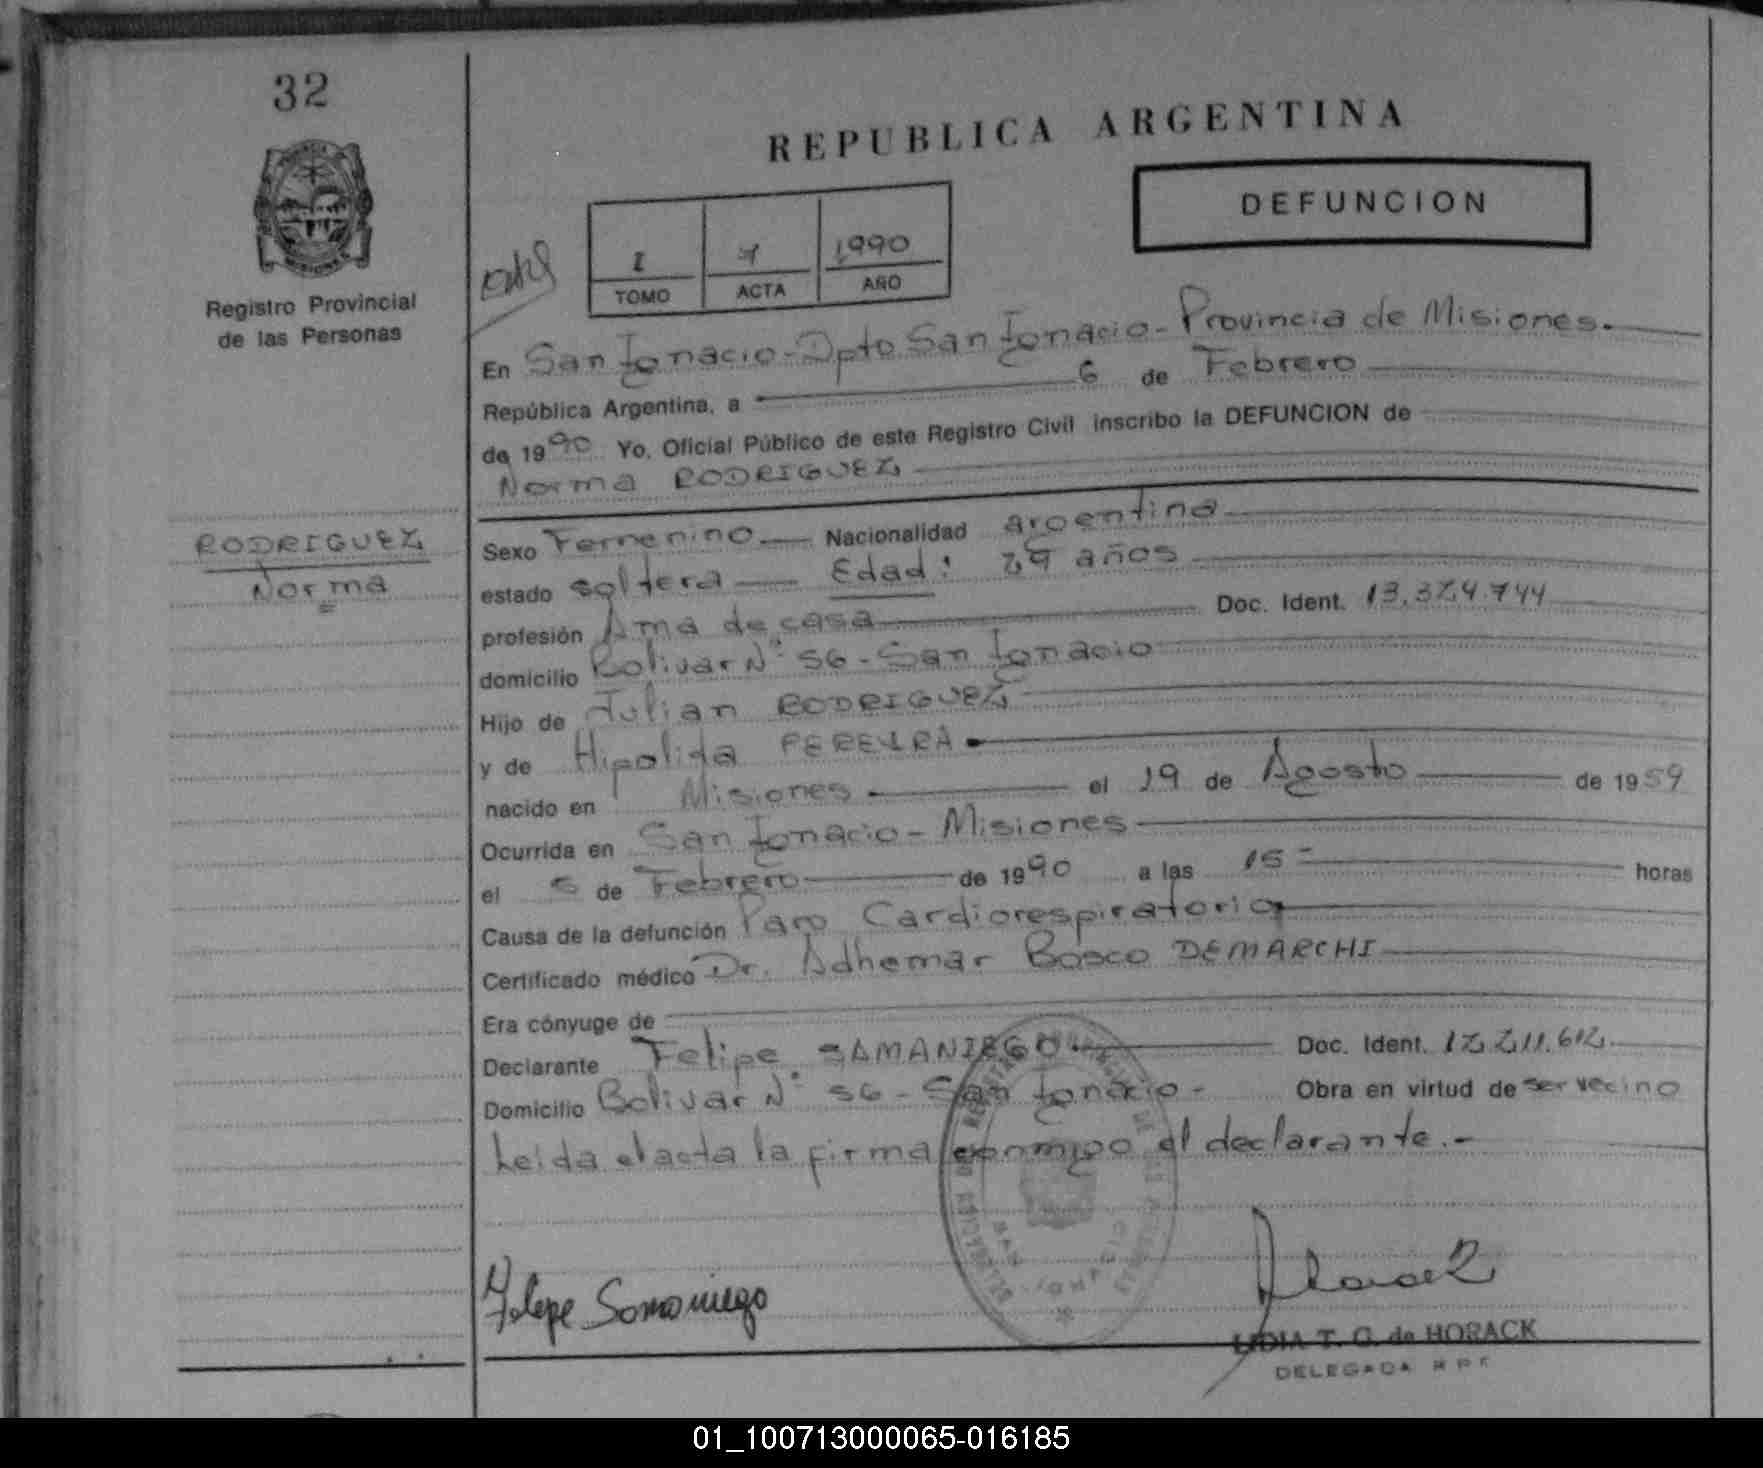 32
REPUBLICA ARGENTINA
DEFUNCION
1990
TOMO ACTA AÑO
Registro Provincial
de las Personas
En San Ignacio - Dpto San Ignacio - Provincia de Misiones.
República Argentina, a 6 de Febrero
de 1990 Yo. Oficial Público de este Registro Civil inscribo la DEFUNCION de
Norma RODRIGUEZ
RODRIGUEZ
Norma
Sexo Femenino Nacionalidad argentina
estado soltera Edad: 29 años
profesión Ama de casa Doc. Ident. 13.324.744
domicilio Bolivar N° 56 - San Ignacio
Hijo de Julian RODRIGUEZ
y de Hipolida PEREYRA
nacido en Misiones el 19 de Agosto de 1959
Ocurrida en San Ignacio - Misiones
el de Febrero de 1990 a las 15 horas
Causa de la defunción Paro Cardiorespiratorio
Certificado médico Dr. Adhemar Bosco DEMARCHI
Era cónyuge de
Declarante Felipe SAMANIEGO Doc. Ident. 12.211.612
Domicilio Bolivar N° 56 - San Ignacio - Obra en virtud de ser vecino
Leida el acta la firma conmigo el declarante.-
Felipe Samaniego
LIDIA T. G. de HORACK
DELEGADA R P P
01_100713000065-016185